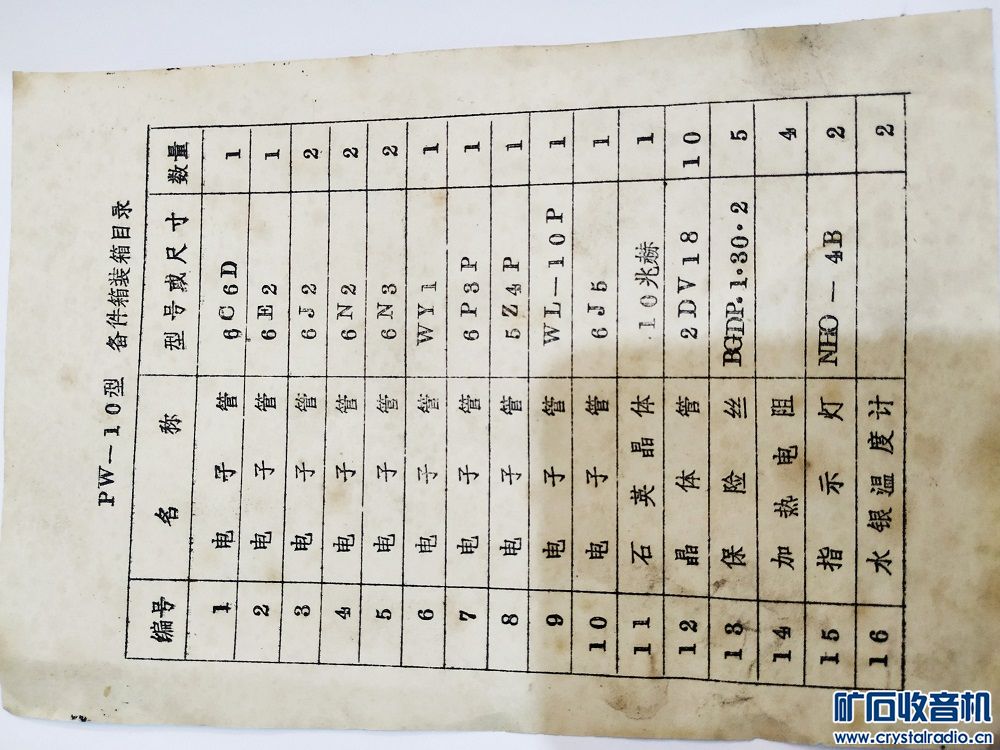 PW-10型 备件箱装箱目录
编号 名称 型号或尺寸 数量
1 电子管 6C6D 1
2 电子管 6E2 1
3 电子管 6J2 2
4 电子管 6N2 2
5 电子管 6N3 2
6 电子管 WY1 1
7 电子管 6P3P 1
8 电子管 5Z4P 1
9 电子管 WL-10P 1
10 电子管 6J5 1
11 石英晶体 10兆赫 1
12 晶体管 2DV18 10
13 保险丝 BGDP·1·30·2 5
14 加热电阻 4
15 指示灯 NHO-4B 2
16 水银温度计 2
矿石收音机
www.crystalradio.cn